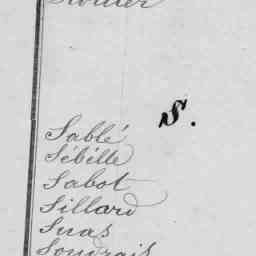 S.
Sablé
Sébille
Sabot
Sillard
Suas
Soudrais